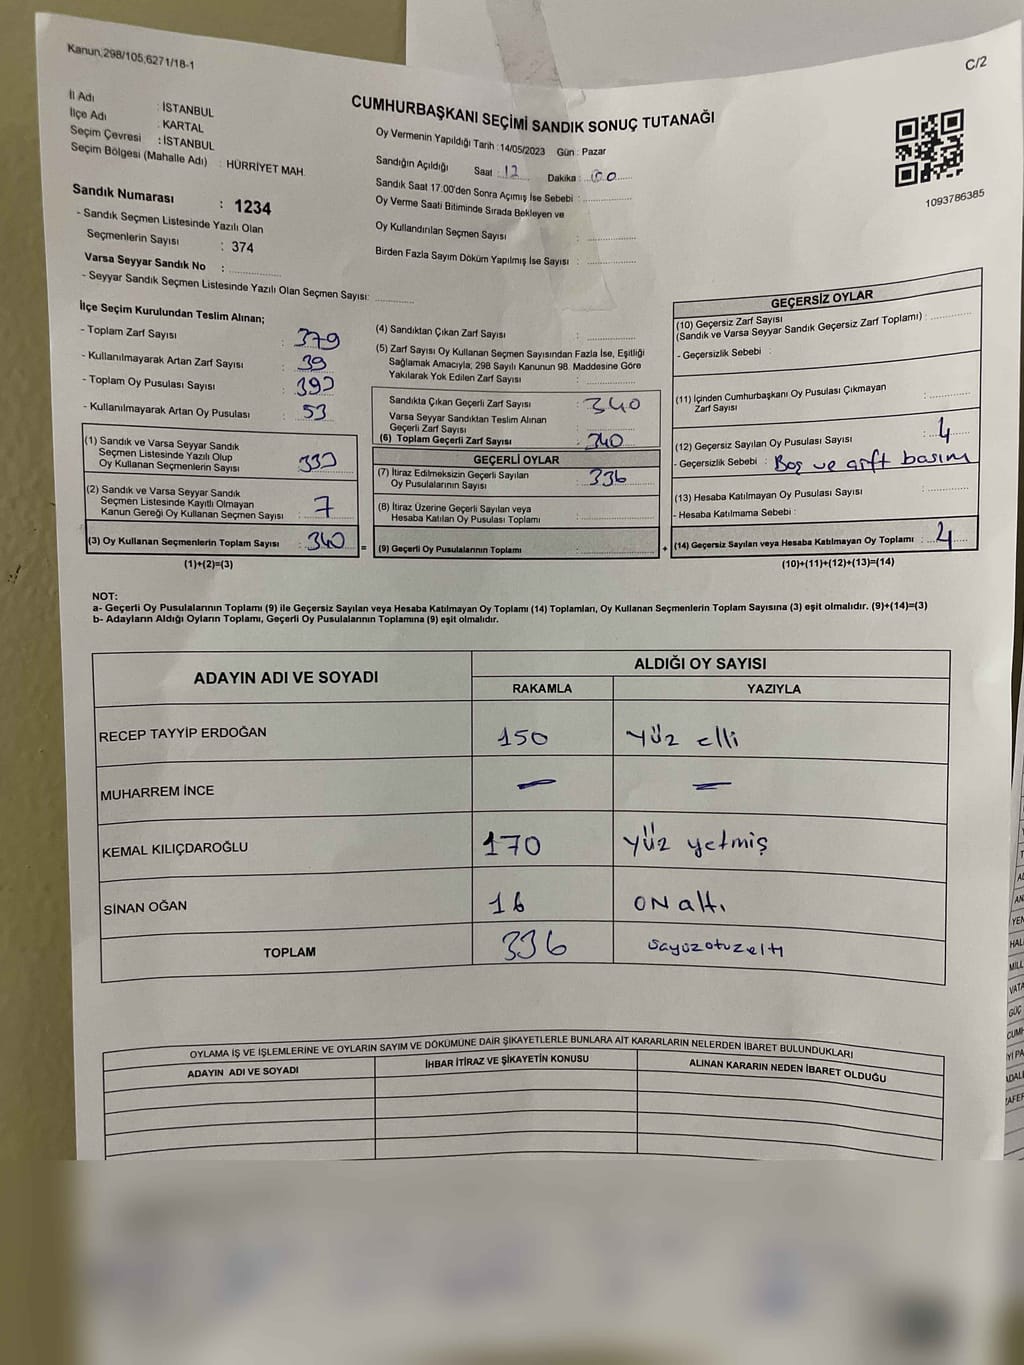 Kanun;298/105;6271/18-1
C/2
CUMHURBAŞKANI SEÇİMİ SANDIK SONUÇ TUTANAĞI
İl Adı : İSTANBUL
İlçe Adı : KARTAL
Seçim Çevresi : İSTANBUL
Seçim Bölgesi (Mahalle Adı) : HÜRRİYET MAH.
Sandık Numarası : 1234
- Sandık Seçmen Listesinde Yazılı Olan
Seçmenlerin Sayısı : 374
Varsa Seyyar Sandık No :
- Seyyar Sandık Seçmen Listesinde Yazılı Olan Seçmen Sayısı:
Oy Vermenin Yapıldığı Tarih :14/05/2023 Gün : Pazar
Sandığın Açıldığı Saat : 17 Dakika : 00
Sandık Saat 17.00'den Sonra Açımış İse Sebebi :
Oy Verme Saati Bitiminde Sırada Bekleyen ve
Oy Kullandırılan Seçmen Sayısı :
Birden Fazla Sayım Döküm Yapılmış İse Sayısı :
1093786385
İlçe Seçim Kurulundan Teslim Alınan;
- Toplam Zarf Sayısı : 379
- Kullanılmayarak Artan Zarf Sayısı : 39
- Toplam Oy Pusulası Sayısı :
- Kullanılmayarak Artan Oy Pusulası : 53
(1) Sandık ve Varsa Seyyar Sandık
Seçmen Listesinde Yazılı Olup
Oy Kullanan Seçmenlerin Sayısı : 333
(2) Sandık ve Varsa Seyyar Sandık
Seçmen Listesinde Kayıtlı Olmayan
Kanun Gereği Oy Kullanan Seçmen Sayısı : 7
(3) Oy Kullanan Seçmenlerin Toplam Sayısı : 340
(1)+(2)=(3)
=
(4) Sandıktan Çıkan Zarf Sayısı :
(5) Zarf Sayısı Oy Kullanan Seçmen Sayısından Fazla İse, Eşitliği
Sağlamak Amacıyla; 298 Sayılı Kanunun 98. Maddesine Göre
Yakılarak Yok Edilen Zarf Sayısı :
Sandıkta Çıkan Geçerli Zarf Sayısı : 340
Varsa Seyyar Sandıktan Teslim Alınan
Geçerli Zarf Sayısı :
(6) Toplam Geçerli Zarf Sayısı : 340
GEÇERLİ OYLAR
(7) İtiraz Edilmeksizin Geçerli Sayılan
Oy Pusulalarının Sayısı : 336
(8) İtiraz Üzerine Geçerli Sayılan veya
Hesaba Katılan Oy Pusulası Toplamı :
(9) Geçerli Oy Pusulalarının Toplamı :
+
GEÇERSİZ OYLAR
(10) Geçersiz Zarf Sayısı
(Sandık ve Varsa Seyyar Sandık Geçersiz Zarf Toplamı) :
- Geçersizlik Sebebi :
(11) İçinden Cumhurbaşkanı Oy Pusulası Çıkmayan
Zarf Sayısı :
(12) Geçersiz Sayılan Oy Pusulası Sayısı : 4
- Geçersizlik Sebebi : Boş ve çift basım
(13) Hesaba Katılmayan Oy Pusulası Sayısı :
- Hesaba Katılmama Sebebi :
(14) Geçersiz Sayılan veya Hesaba Katılmayan Oy Toplamı : 4
(10)+(11)+(12)+(13)=(14)
NOT:
a- Geçerli Oy Pusulalarının Toplamı (9) ile Geçersiz Sayılan veya Hesaba Katılmayan Oy Toplamı (14) Toplamları, Oy Kullanan Seçmenlerin Toplam Sayısına (3) eşit olmalıdır. (9)+(14)=(3)
b- Adayların Aldığı Oyların Toplamı, Geçerli Oy Pusulalarının Toplamına (9) eşit olmalıdır.
ADAYIN ADI VE SOYADI ALDIĞI OY SAYISI
RAKAMLA YAZIYLA
RECEP TAYYİP ERDOĞAN 150 Yüz elli
MUHARREM İNCE — —
KEMAL KILIÇDAROĞLU 170 Yüz yetmiş
SİNAN OĞAN 16 ON altı
TOPLAM 336
OYLAMA İŞ VE İŞLEMLERİNE VE OYLARIN SAYIM VE DÖKÜMÜNE DAİR ŞİKAYETLERLE BUNLARA AİT KARARLARIN NELERDEN İBARET BULUNDUKLARI
ADAYIN ADI VE SOYADI İHBAR İTİRAZ VE ŞİKAYETİN KONUSU ALINAN KARARIN NEDEN İBARET OLDUĞU